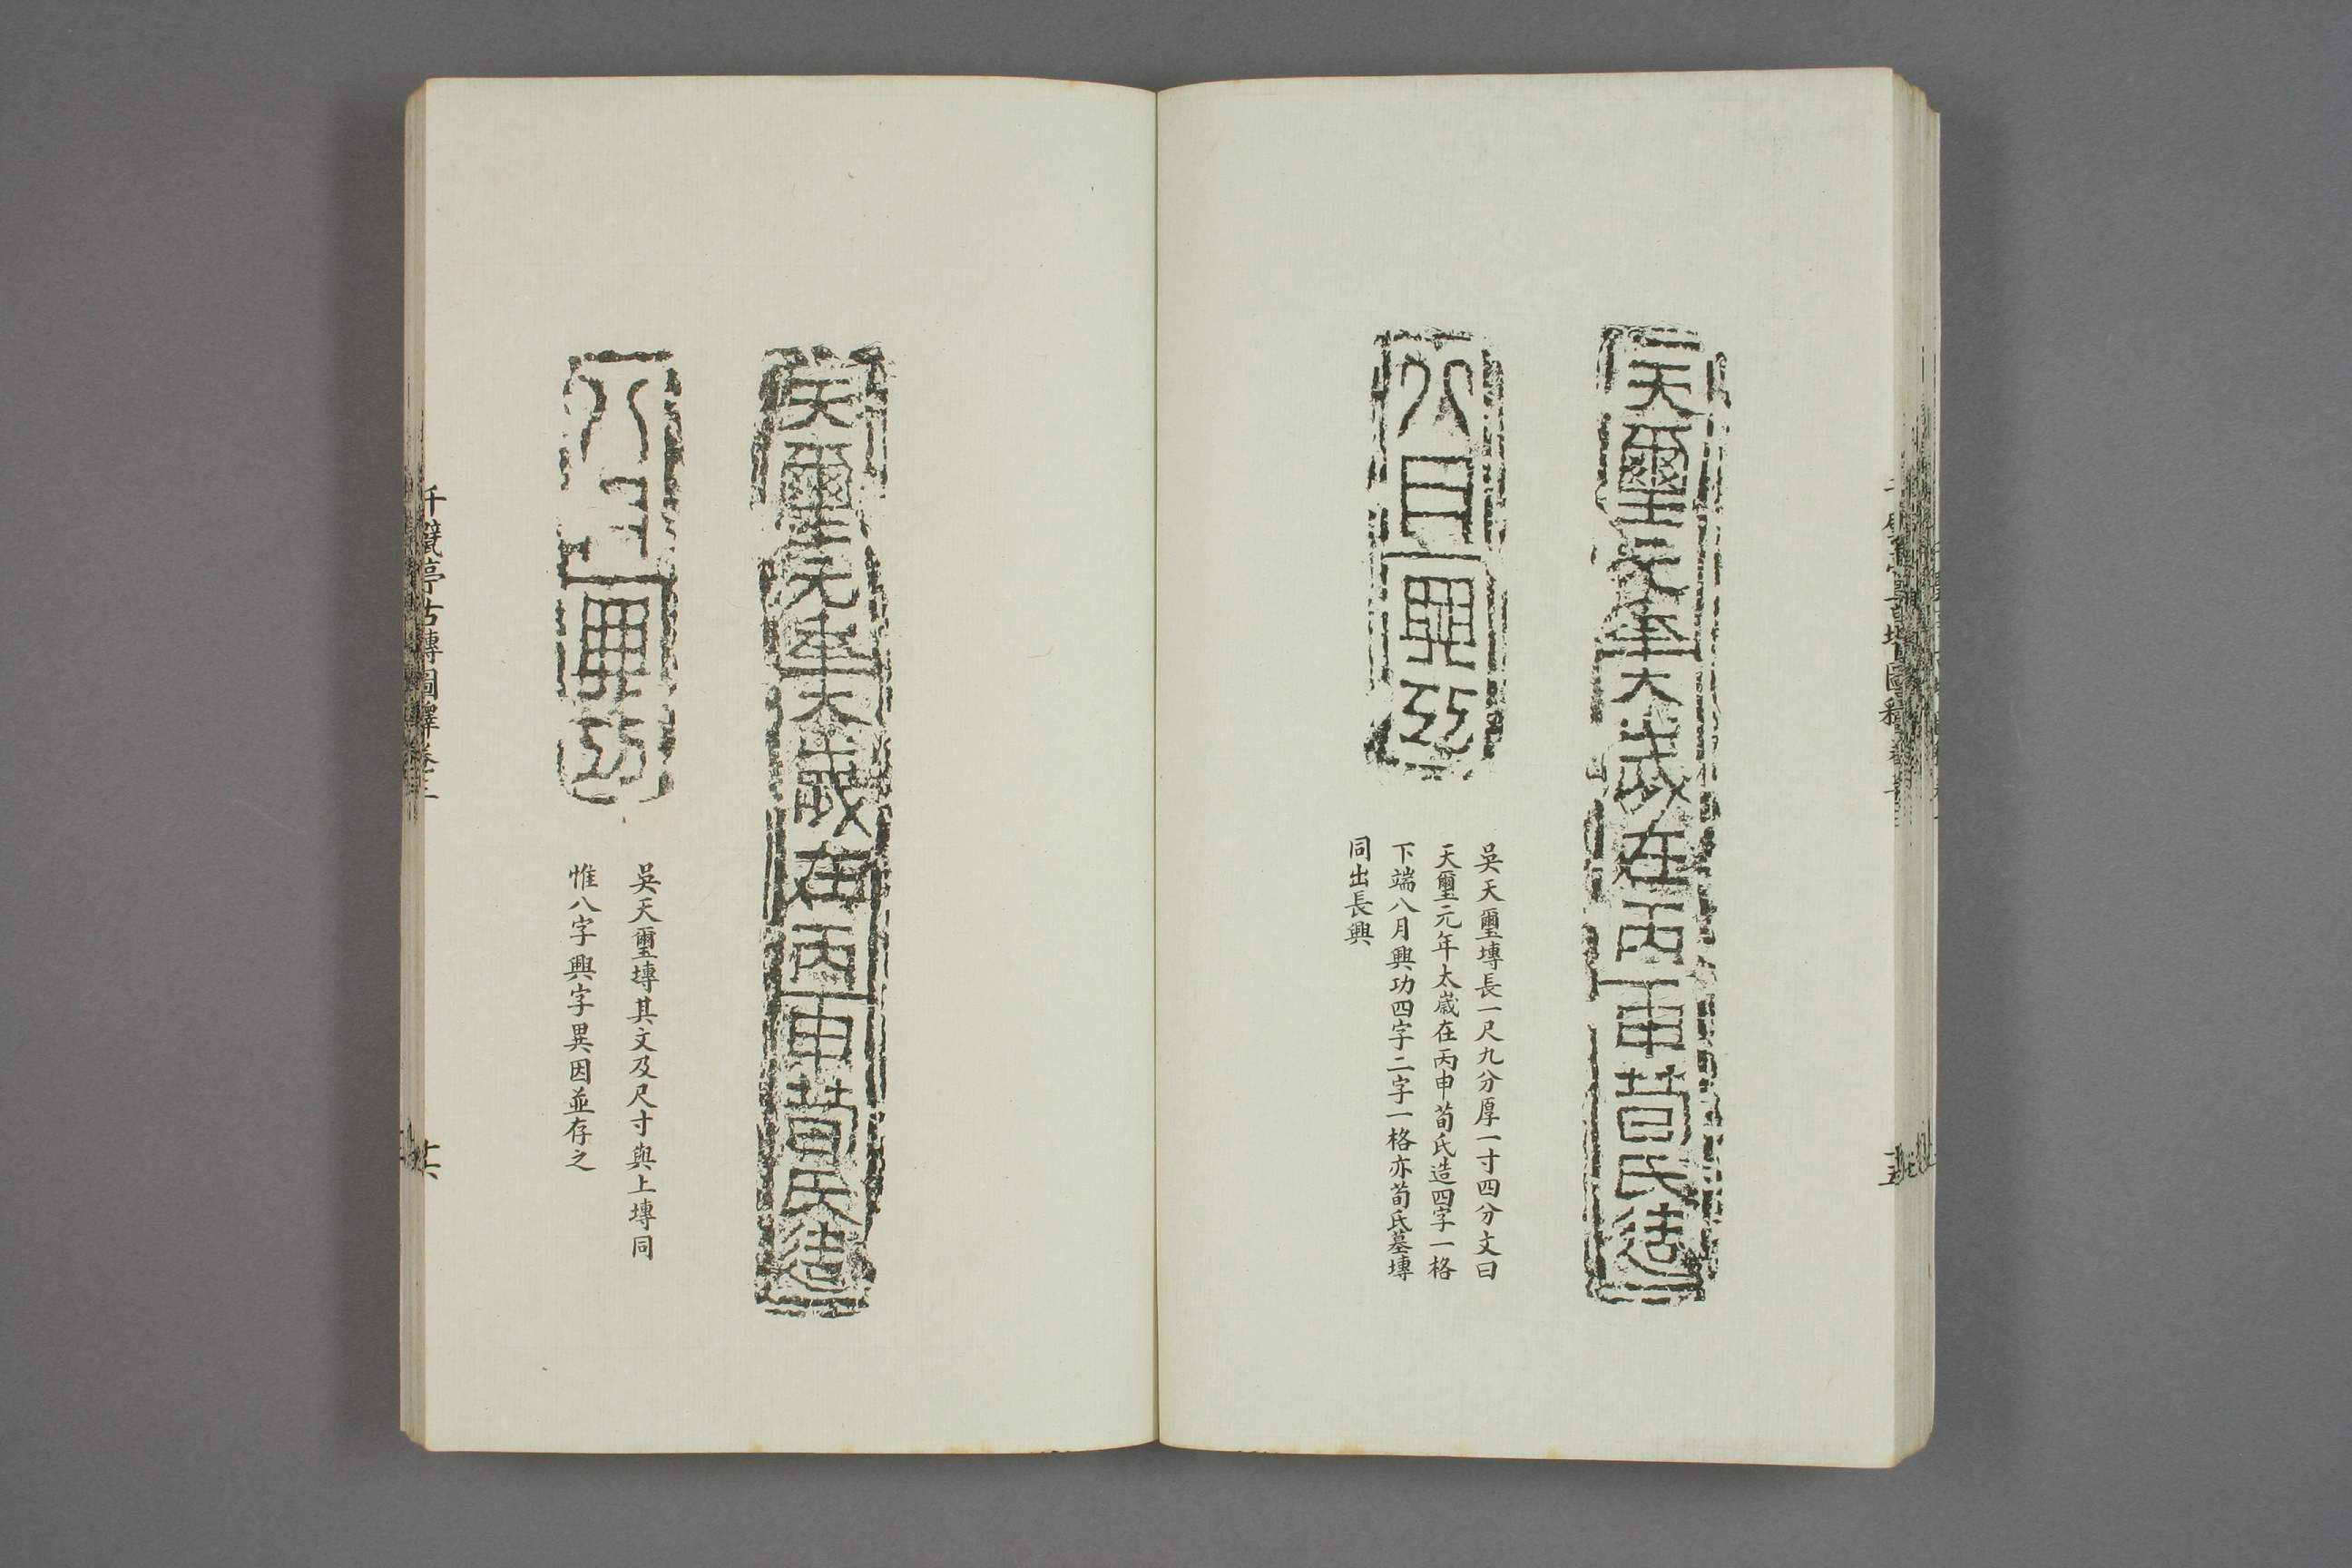 天璽元年太歲在丙申荀氏造
八月興功
吳天璽塼長一尺九分厚一寸四分文曰
天璽元年太歲在丙申荀氏造四字一格
下端八月興功四字二字一格亦荀氏墓塼
同出長興
天璽元年太歲在丙申荀氏造
八月興功
吳天璽塼其文及尺寸與上塼同
惟八字興字異因並存之
千甓亭古塼圖釋卷三